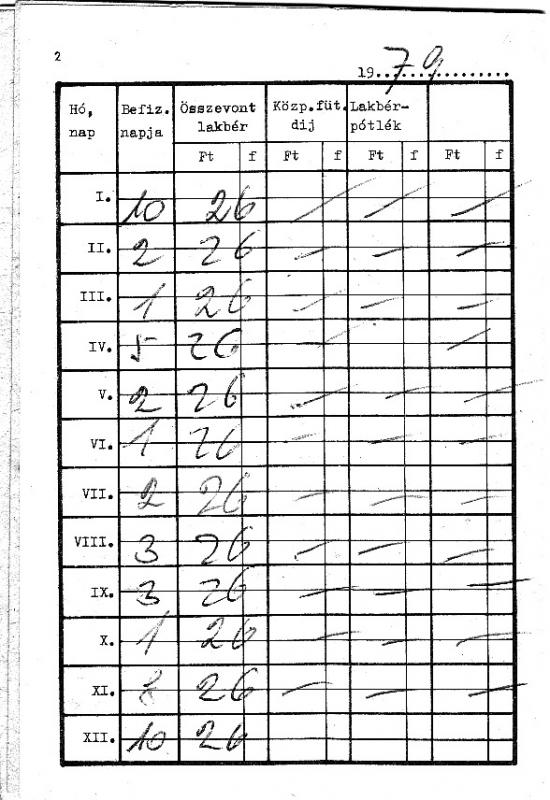 2
1979
Hó, nap Befiz. napja Összevont lakbér Közp.füt. díj Lakbér-pótlék
Ft f Ft f Ft f Ft f
I. 10 26 — — —
II. 2 26 — — —
III. 1 26 — — —
IV. 5 26 — —
V. 2 26 — — —
VI. 1 26 — — —
VII. 2 26 — — —
VIII. 3 26 — — —
IX. 3 26 — — —
X. 1 26 — — —
XI. 8 26 — — —
XII. 10 26